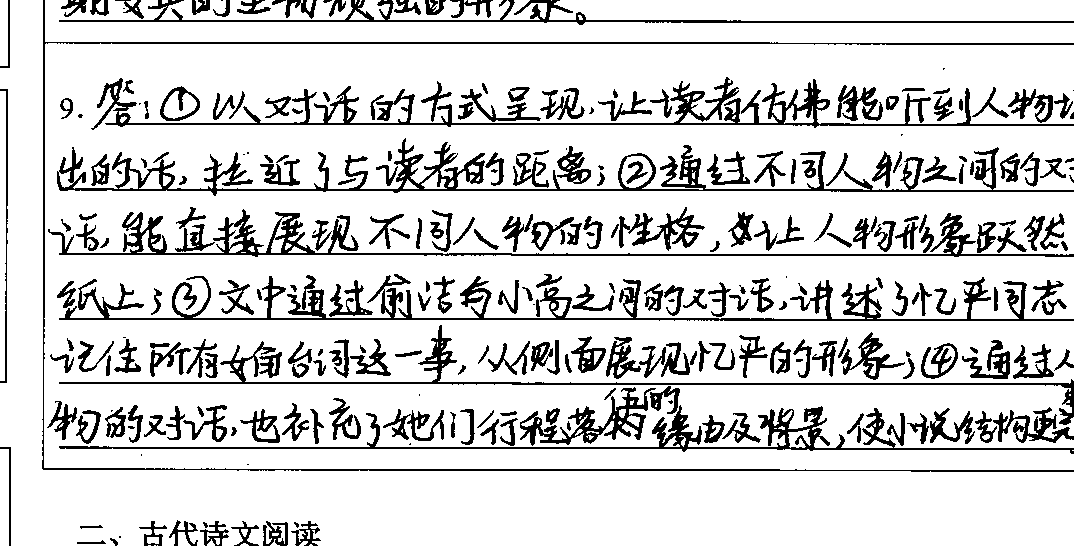 的形象。
9. 答:①以对话的方式呈现,让读者仿佛能听到人物
出的话,拉近了与读者的距离;②通过不同人物之间的对
话,能直接展现不同人物的性格,让人物形象跃然
纸上;③文中通过俞洁与小高之间的对话,讲述了忆平同志
记住所有女角台词这一事,从侧面展现忆平的形象;④通过人
物的对话,也补充了她们行程落伍的缘由及背景,使小说结构更完
二、古代诗文阅读